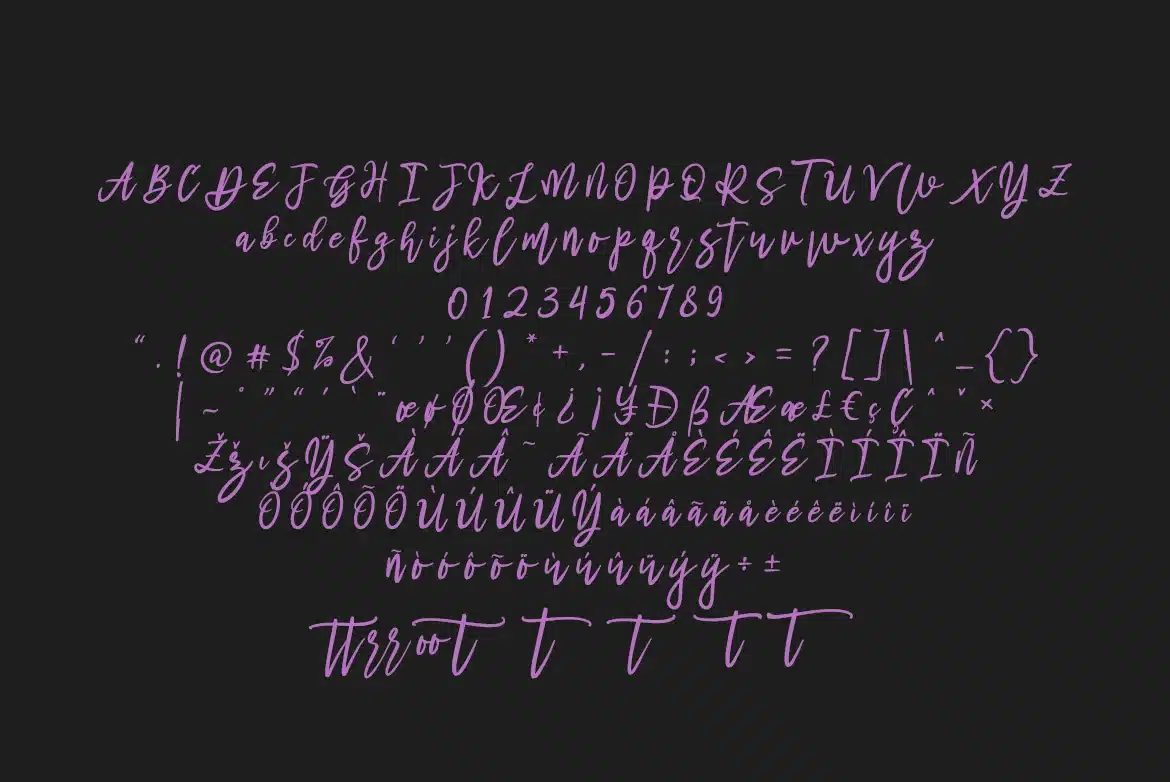 A B C D E F G H I J K L M N O P Q R S T U V W X Y Z
a b c d e f g h i j k l m n o p q r s t u v w x y z
0 1 2 3 4 5 6 7 8 9
“ . ! @ # $ % & ‘ ’ ’ ( ) * + , - / : ; < > = ? [ ] \ ^ _ { }
| ~ ° ” “ ′ ` ¨ œ ø Ø Œ ¢ ¿ ¡ ¥ Ð ß Æ æ £ € ç Ç ˆ ˇ ×
Ž ž ı š Ÿ Š À Á Â ˜ Ã Ä Å È É Ê Ë Ì Í Î Ï Ñ
Ò Ó Ô Õ Ö Ù Ú Û Ü Ý à á â ã ä å è é ê ë ì í î ï
ñ ò ó ô õ ö ù ú û ü ý ÿ ÷ ±
tt rr oo t t t t t